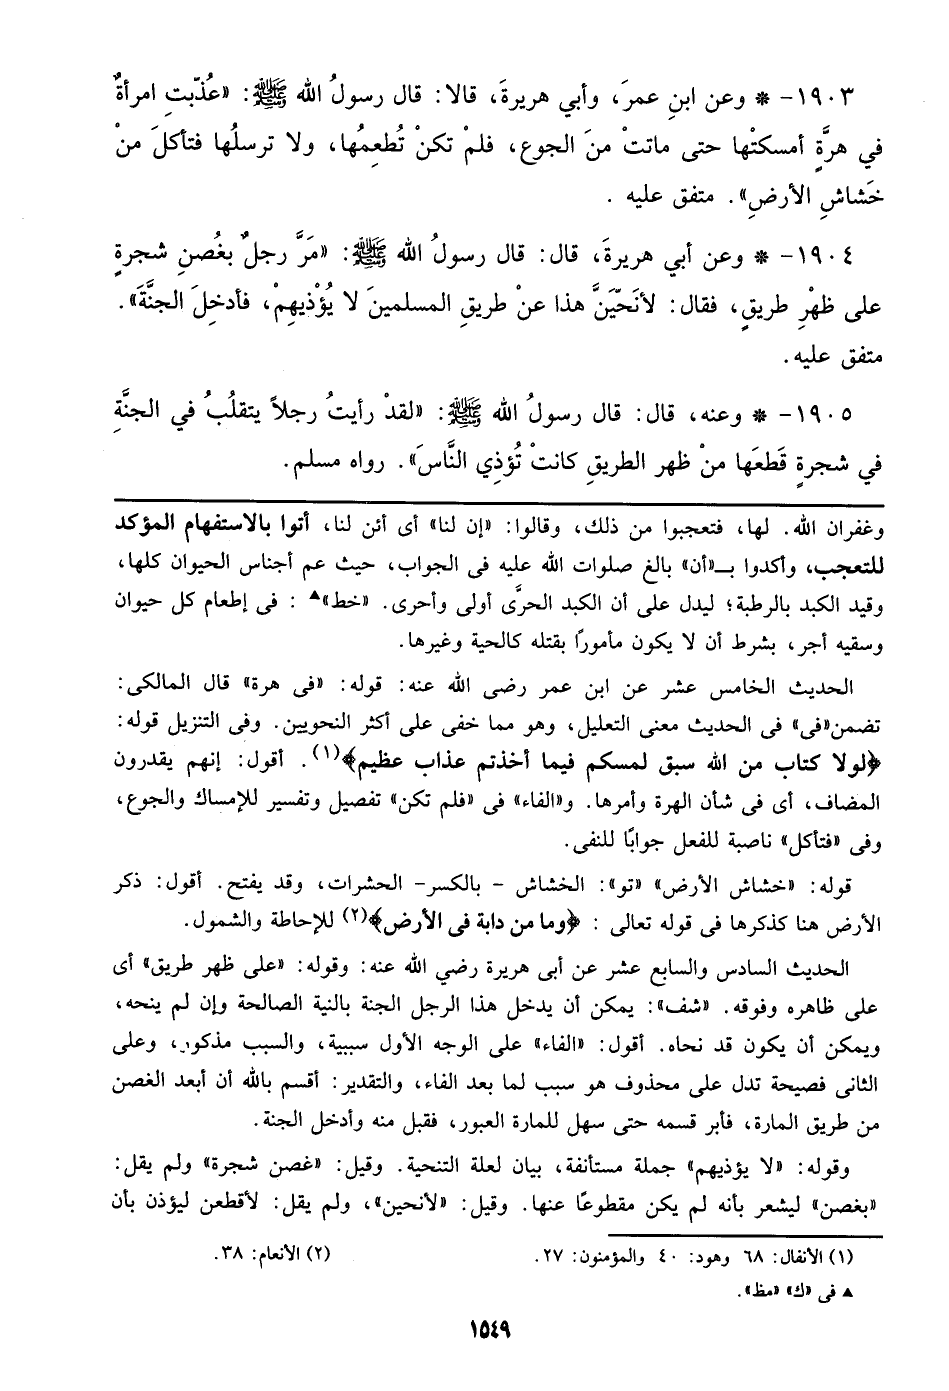 ١٩٠٣- * وعن ابنِ عمرَ، وأبي هريرةَ، قالا: قال رسولُ الله ﷺ: «عُذّبتِ امرأةٌ
في هرَّةٍ أمسكتْها حتى ماتتْ منَ الجوع، فلمْ تكنْ تُطعِمُها، ولا ترسلُها فتأكلَ منْ
خَشاشِ الأرضِ». متفق عليه .
١٩٠٤- * وعن أبي هريرةَ، قال: قال رسولُ الله ﷺ: «مَرَّ رجلٌ بغُصنِ شجرةٍ
على ظهْرِ طريقٍ، فقال: لأنَحّيَنَّ هذا عنْ طريقِ المسلمينَ لا يُؤْذيهِمْ، فأدخِلَ الجنَّةَ».
متفق عليه.
١٩٠٥- * وعنه، قال: قال رسولُ الله ﷺ: «لقدْ رأيتُ رجلاً يتقلبُ في الجنَّةِ
في شجرةٍ قَطعَها منْ ظهر الطريقِ كانتْ تُؤذِي النَّاسَ». رواه مسلم.
وغفران الله. لها، فتعجبوا من ذلك، وقالوا: «إن لنا» أى أئن لنا، أتوا بالاستفهام المؤكد
للتعجب، وأكدوا بــ«أن» بالغ صلوات الله عليه فى الجواب، حيث عم أجناس الحيوان كلها،
وقيد الكبد بالرطبة؛ ليدل على أن الكبد الحرَّى أولى وأحرى. «خط»▲ : فى إطعام كل حيوان
وسقيه أجر، بشرط أن لا يكون مأمورًا بقتله كالحية وغيرها.
الحديث الخامس عشر عن ابن عمر رضى الله عنه: قوله: «فى هرة» قال المالكى:
تضمن«فى» فى الحديث معنى التعليل، وهو مما خفى على أكثر النحويين. وفى التنزيل قوله:
﴿لولا كتاب من الله سبق لمسكم فيما أخذتم عذاب عظيم﴾(١). أقول: إنهم يقدرون
المضاف، أى فى شأن الهرة وأمرها. و«الفاء» فى «فلم تكن» تفصيل وتفسير للإمساك والجوع،
وفى «فتأكل» ناصبة للفعل جوابًا للنفى.
قوله: «خشاش الأرض» «تو»: الخشاش - بالكسر- الحشرات، وقد يفتح. أقول: ذكر
الأرض هنا كذكرها فى قوله تعالى : ﴿وما من دابة فى الأرض﴾(٢) للإحاطة والشمول.
الحديث السادس والسابع عشر عن أبى هريرة رضي الله عنه: وقوله: «على ظهر طريق» أى
على ظاهره وفوقه. «شف»: يمكن أن يدخل هذا الرجل الجنة بالنية الصالحة وإن لم ينحه،
ويمكن أن يكون قد نحاه. أقول: «الفاء» على الوجه الأول سببية، والسبب مذكور، وعلى
الثانى فصيحة تدل على محذوف هو سبب لما بعد الفاء، والتقدير: أقسم بالله أن أبعد الغصن
من طريق المارة، فأبر قسمه حتى سهل للمارة العبور، فقبل منه وأدخل الجنة.
وقوله: «لا يؤذيهم» جملة مستأنفة، بيان لعلة التنحية. وقيل: «غصن شجرة» ولم يقل:
«بغصن» ليشعر بأنه لم يكن مقطوعًا عنها. وقيل: «لأنحين»، ولم يقل: لأقطعن ليؤذن بأن
(١) الأنفال: ٦٨ وهود: ٤٠ والمؤمنون: ٢٧. (٢) الأنعام: ٣٨.
▲ فى «ك» «مظ».
١٥٤٩